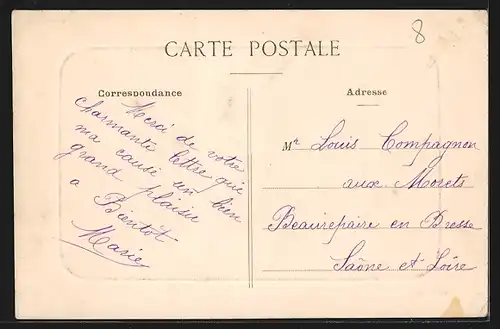 8
CARTE POSTALE
Correspondance
Merci de votre
charmante lettre qui
ma causé un bien
grand plaisir
a Bientôt
Marie
Adresse
Mr Louis Compagnon
aux Morets
Beaurepaire en Bresse
Saône et Loire